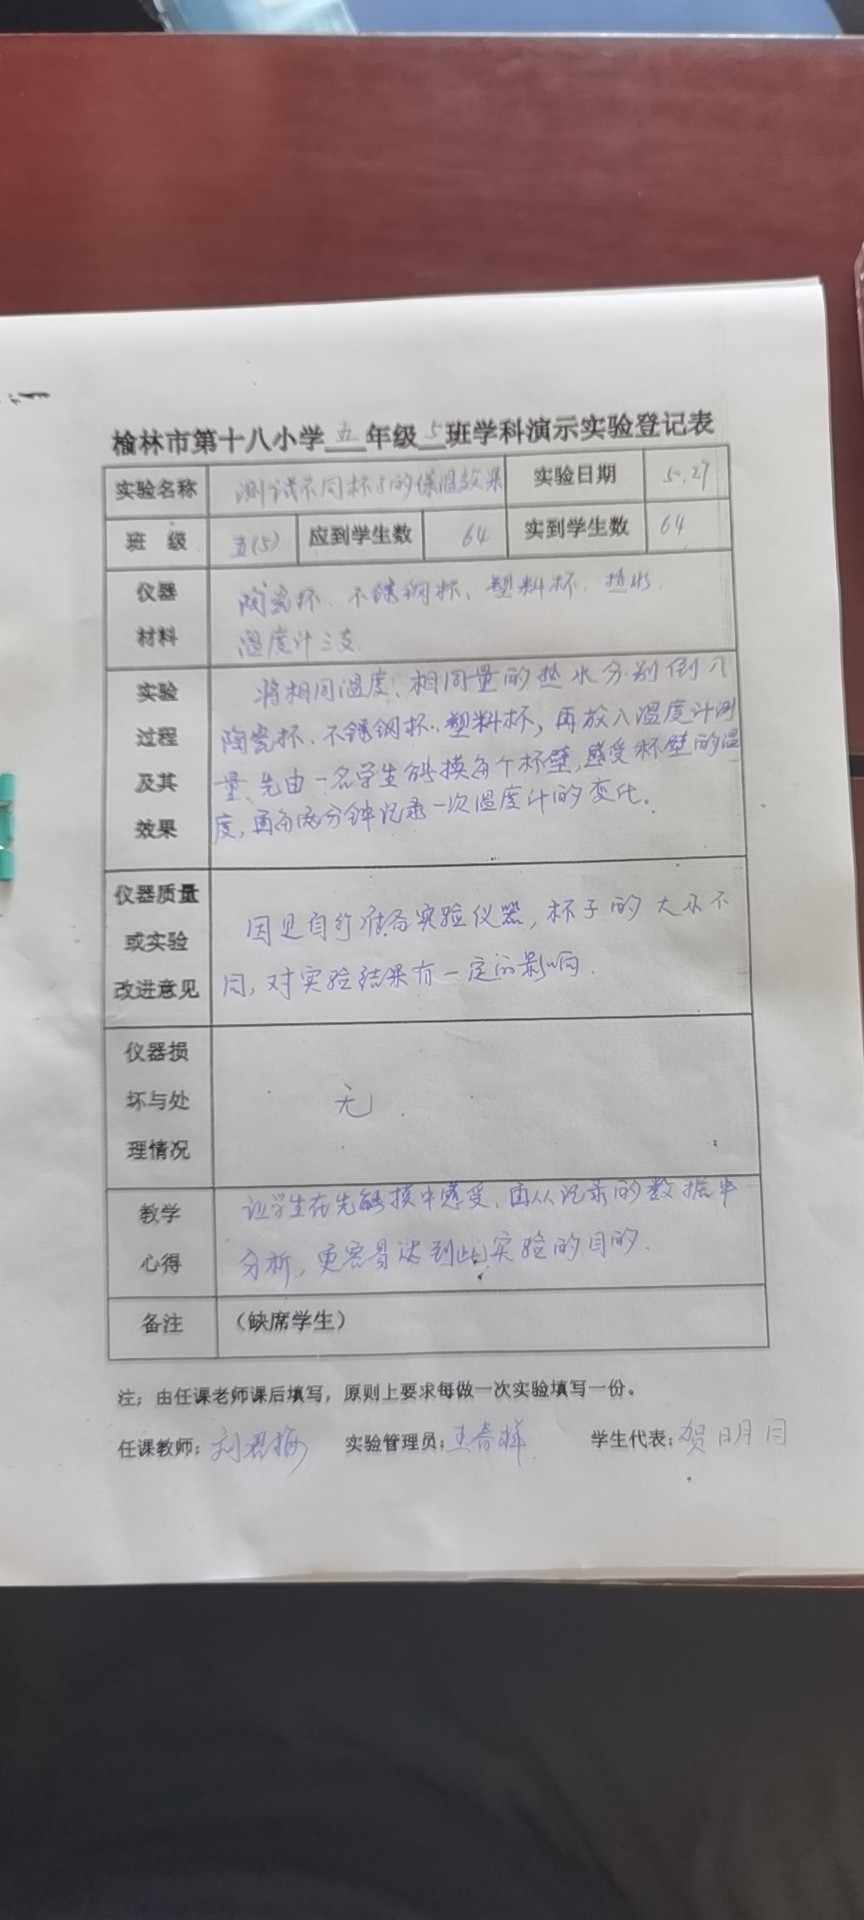 榆林市第十八小学五年级5班学科演示实验登记表
实验名称 测试不同杯子的保温效果 实验日期 5.27
班 级 五(5) 应到学生数 64 实到学生数 64
仪器 陶瓷杯、不锈钢杯、塑料杯、热水、
材料 温度计三支
实验 将相同温度、相同量的热水分别倒入
过程 陶瓷杯、不锈钢杯、塑料杯,再放入温度计测
及其 量,先由一名学生触摸每个杯壁,感受杯壁的温
效果 度,再每两分钟记录一次温度计的变化。
仪器质量
或实验
改进意见
因是自行准备实验仪器,杯子的大小不
同,对实验结果有一定的影响.
仪器损
坏与处
理情况
无.
教学 让学生在先触摸中感受、再从记录的数据中
心得 分析,更容易达到此实验的目的.
备注 (缺席学生)
注:由任课老师课后填写,原则上要求每做一次实验填写一份。
任课教师: 实验管理员: 学生代表:贺明月